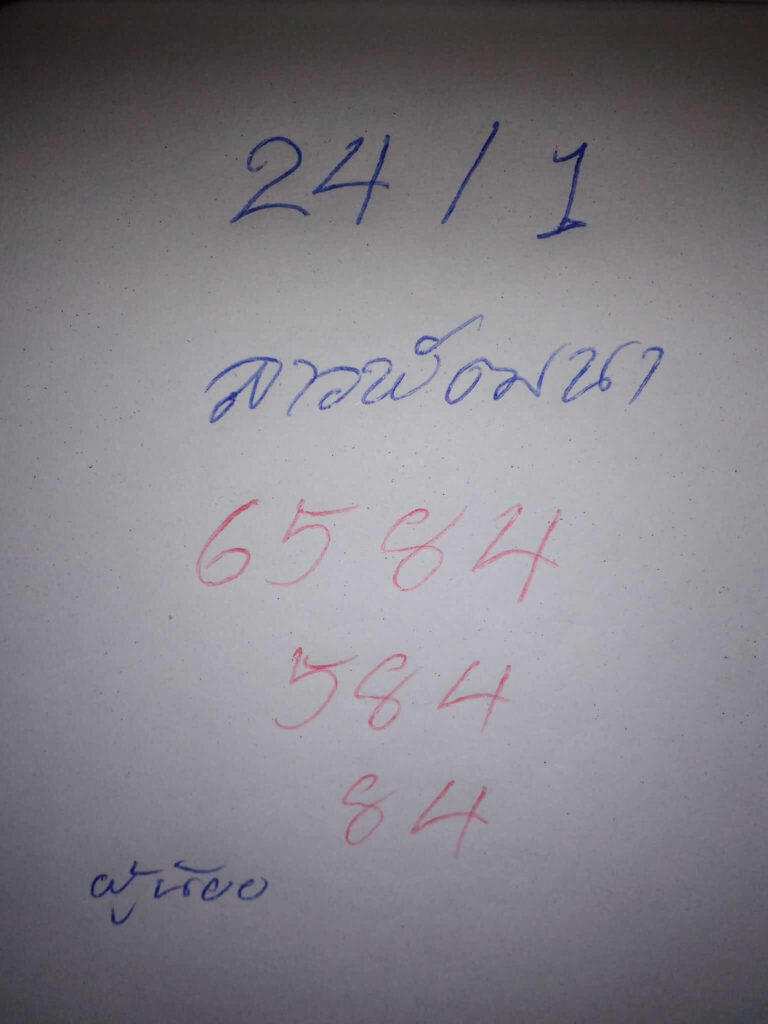 24/1
ลาวพัฒนา
6584
584
84
ผู้น้อย